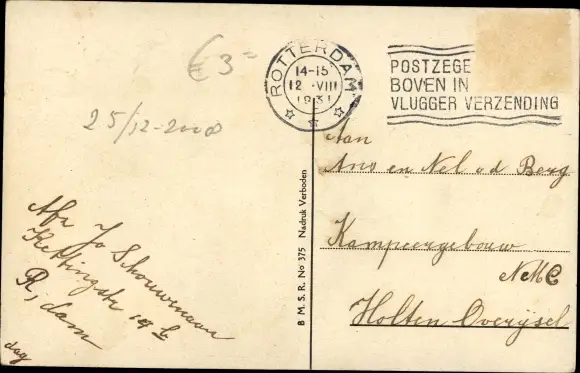 € 3=
25/12-2008
ROTTERDAM
14-15
12 .VIII
1931
POSTZEGE
BOVEN IN
VLUGGER VERZENDING
Aan
Ans en Nel v d Berg
Kampeergebouw
N.M.C
Holten Overijsel
B M. S. R. No 375 Nadruk Verboden
Afz Jo Schouwenaar
Kettingstr 19
R, dam
dag